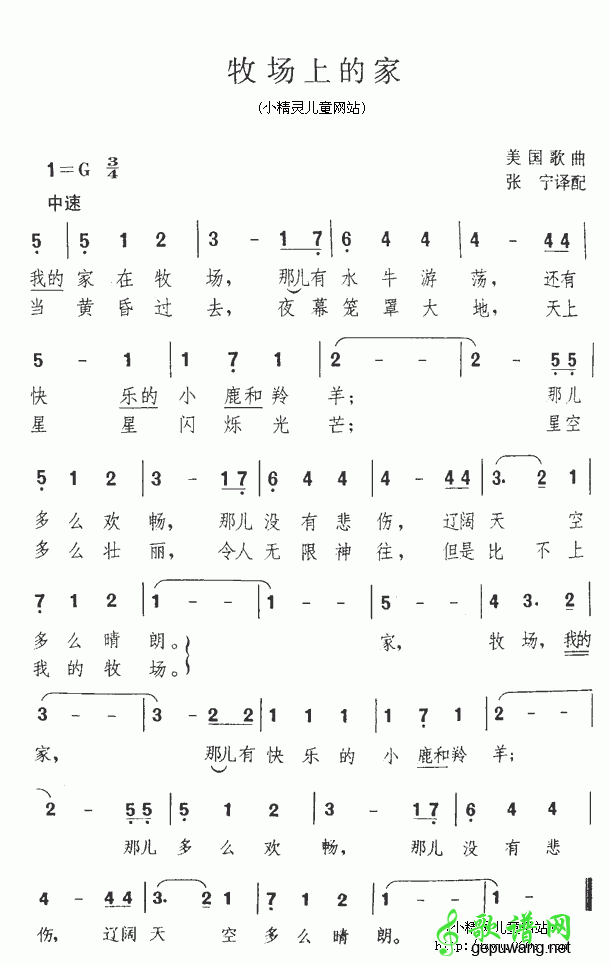 牧场上的家
(小精灵儿童网站)
美国歌曲
1=G 3/4
张 宁译配
中速
5 | 5 1 2 | 3 - 1 7 | 6 4 4 | 4 - 44 |
我的 家 在 牧 场, 那儿 有 水 牛 游 荡, 还有
当 黄 昏 过 去, 夜 幕 笼 罩 大 地, 天上
5 - 1 | 1 7 1 | 2 - - | 2 - 55 |
快 乐的 小 鹿和 羚 羊; 那儿
星 星 闪 烁 光 芒; 星空
5 1 2 | 3 - 17 | 6 4 4 | 4 - 44 | 3. 2 1 |
多 么 欢 畅, 那儿 没 有 悲 伤, 辽阔 天 空
多 么 壮 丽, 令人 无 限 神 往, 但是 比 不 上
7 1 2 | 1 - - | 1 - - | 5 - - | 4 3. 2 |
多 么 晴 朗。 家, 牧 场, 我的
我 的 牧 场。
3 - - | 3 - 2 2 | 1 1 1 | 1 7 1 | 2 - - |
家, 那儿 有 快 乐 的 小 鹿和 羚 羊;
2 - 55 | 5 1 2 | 3 - 17 | 6 4 4 |
那儿 多 么 欢 畅, 那儿 没 有 悲
4 - 44 | 3. 2 1 | 7 1 2 | 1 - - | 1 -
伤, 辽阔 天 空 多 么 晴 朗。
小精灵儿童网站
歌谱网
gepuwang.net